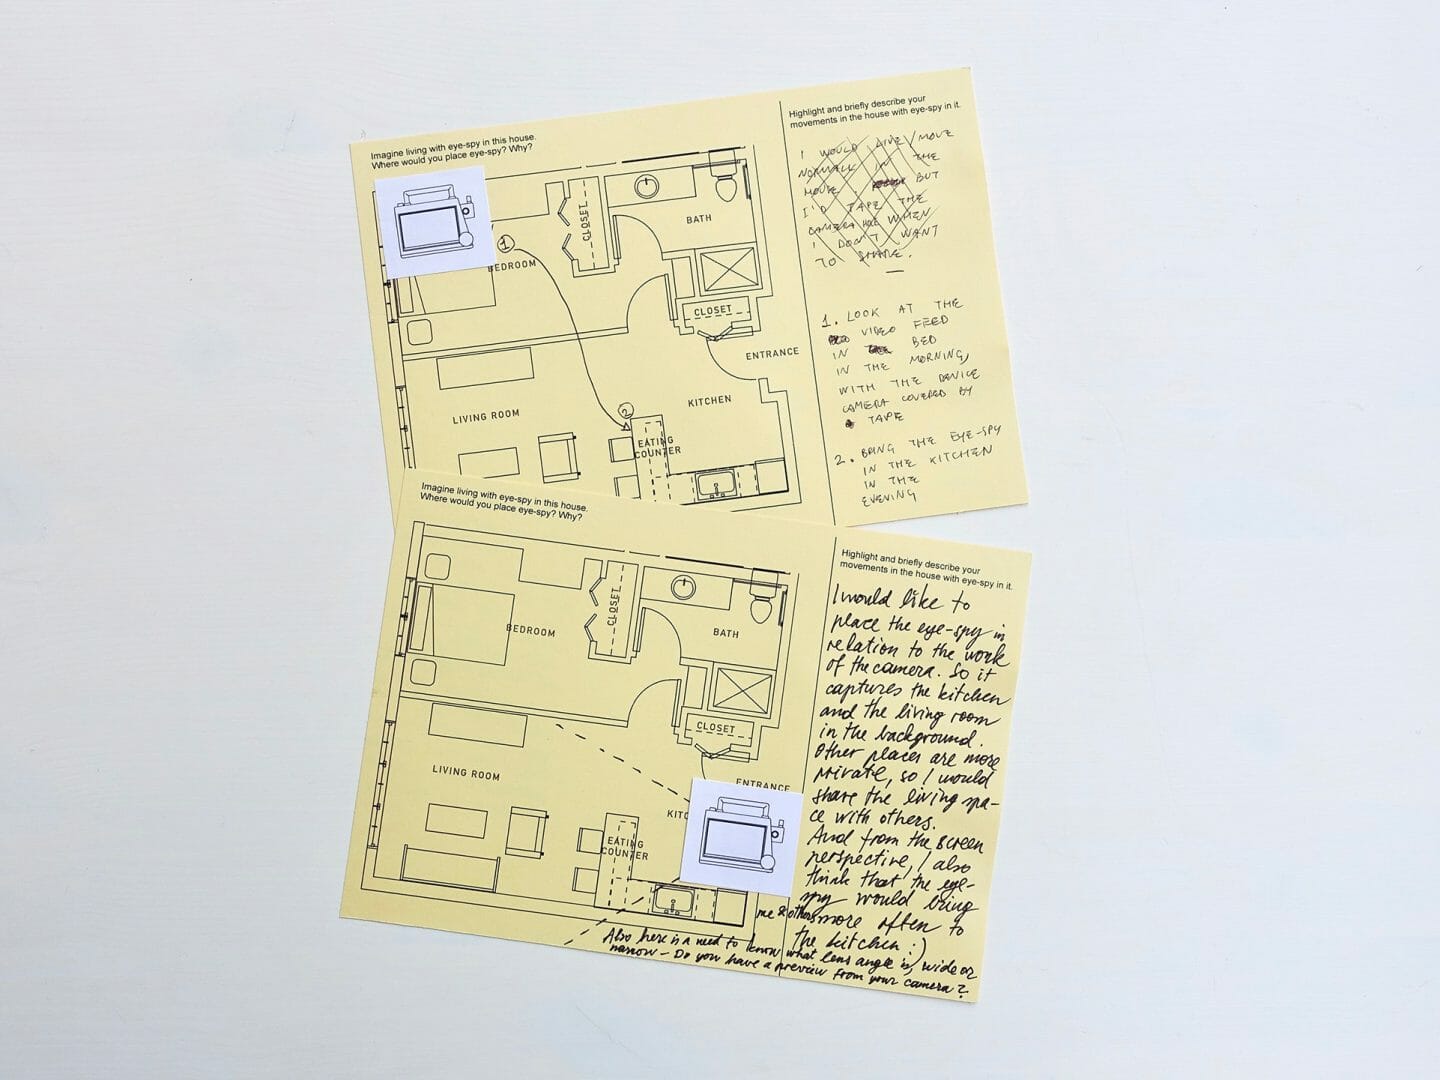 Imagine living with eye-spy in this house.
Where would you place eye-spy? Why?
CLOSET
BATH
1
BEDROOM
CLOSET
ENTRANCE
KITCHEN
LIVING ROOM
2
EATING
COUNTER
Highlight and briefly describe your
movements in the house with eye-spy in it.
I WOULD LIVE/MOVE
IN THE
BUT
I'D TAPE THE
CAMERA WHEN
I DON'T WANT
TO SHARE.
1. LOOK AT THE
VIDEO FEED
IN BED
IN THE MORNING,
WITH THE DEVICE
CAMERA COVERED BY
TAPE
2. BRING THE EYE-SPY
IN THE KITCHEN
IN THE
EVENING
Imagine living with eye-spy in this house.
Where would you place eye-spy? Why?
CLOSET
BEDROOM
BATH
CLOSET
ENTRANCE
LIVING ROOM
KITC
EATING
COUNTER
Highlight and briefly describe your
movements in the house with eye-spy in it.
I would like to
place the eye-spy in
relation to the work
of the camera. So it
captures the kitchen
and the living room
in the background.
Other places are more
private, so I would
share the living spa-
ce with others.
And from the screen
perspective, I also
think that the eye-
spy would bring
me & others more often to
the kitchen :)
Also here is a need to know what lens angle is, wide or
narrow – Do you have a preview from your camera?